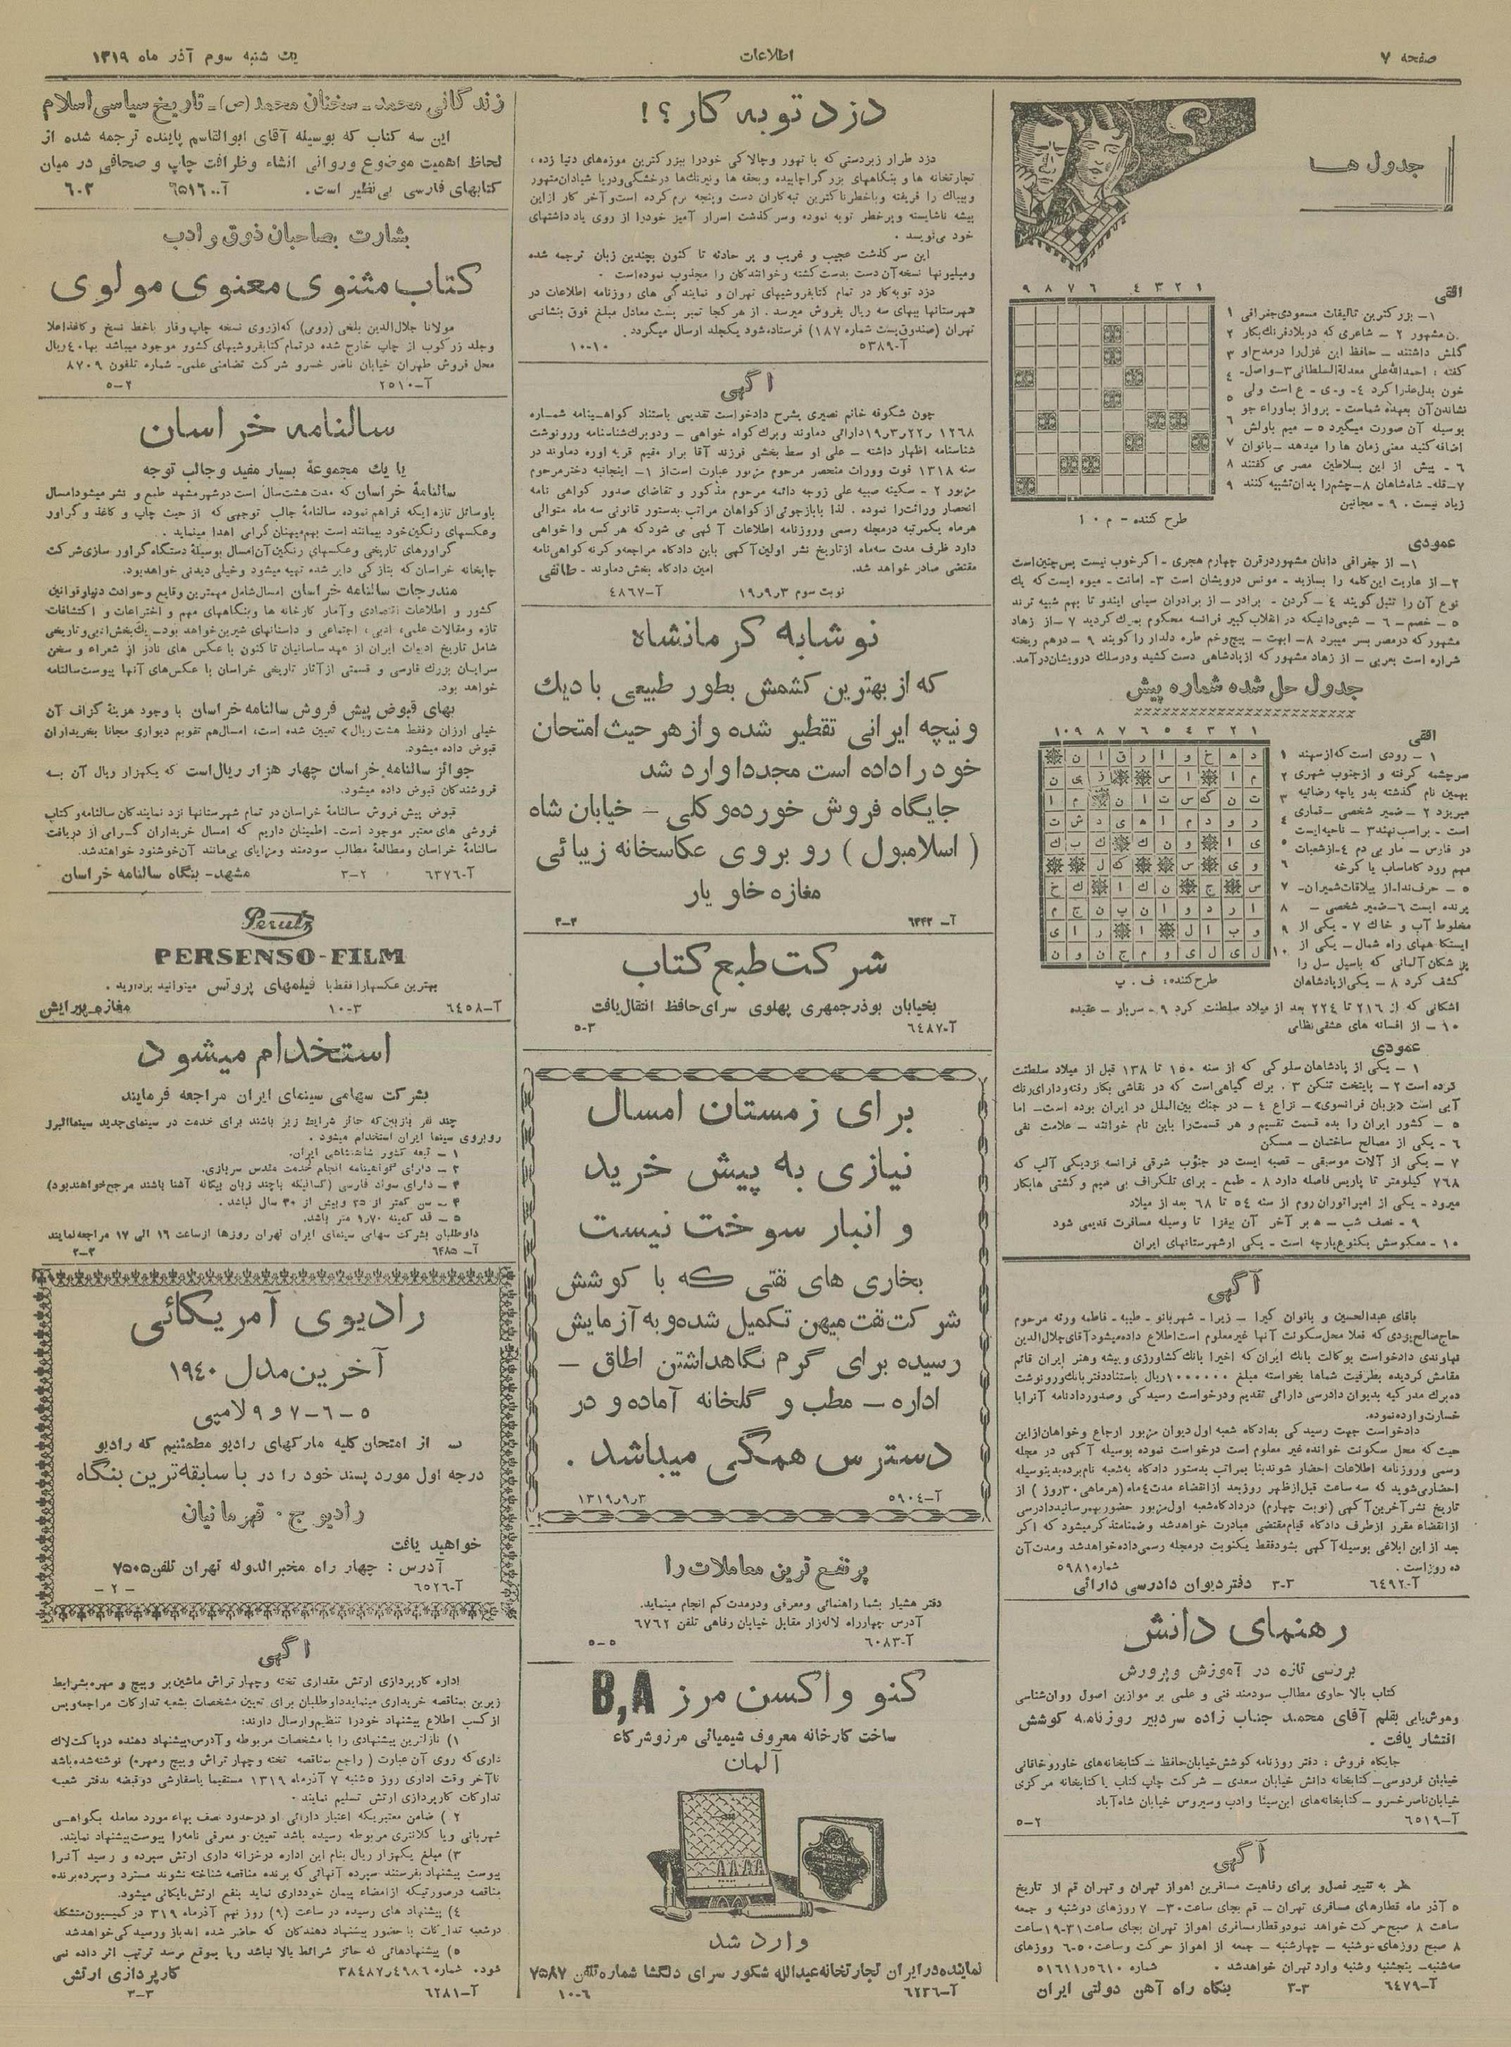 صفحه ۷
اطلاعات
یک شنبه سوم آذر ماه ۱۳۱۹
جدول ها
افقی
۱- بزرگترین تالیفات مسعودی جغرافی
دن مشهور ۲ - شاعری که در بلاد فرنك بکار
گلش داشتند - حافظ این غزل را در مدح او
گفته : احمدالله علی معدلة السلطانی ۳- واصل-
خون بدل عذرا کرد ۴- و-ی - ع است ولی
نشاندن آن بعهده شماست- پرواز بماوراء جو
بوسیله آن صورت میگیرد ۵ - میم باولش
اضافه کنید معنی زمان ها را میدهد - بانوان
۶ - پیش از این بسلاطین مصر می گفتند
۷- قله- شاه شاهان ۸- چشم را بدان تشبیه کنند
زیاد نیست ۰ ۹ - مجانین
طرح کننده - م ۱۰
عمودی
۱- از جغرافی دانان مشهور در قرن چهارم هجری - اگر خوب نیست پس چنین است
۲- از عاریت این کلمه را بسازید - مونس درویشان است ۳- امانت - میوه ایست که یك
نوع آن را تنبل گویند ۴ - گردن - برادر - از برادران سیامی ایندو تا بهم شبیه ترند
۵ - خصم - ۶ - شیمی دانیکه در انقلاب کبیر فرانسه محکوم بمرك گردید ۷ - از زهاد
مشهور که در مصر بسر میبرد ۸- ابهت - پیچ و خم طره دلدار را گویند ۹ - درهم ریخته
شراره است بعربی - از زهاد مشهور که از پادشاهی دست کشید و در سلك درویشان در آمد.
جدول حل شده شماره پیش
افقی
۱ - رودی است که از سهند
سرچشمه گرفته و از جنوب شهری
بهمین نام گذشته بدریاچه رضائیه
میریزد ۲ - ضمیر شخصی - قماری
است - براسب نهند ۳ - ناحیه ایست
در فارس - مار بی دم ۴- از شعبات
مهم رود کاماساب یا کرخه
۵ - حرف ندا- از ییلاقات شمیران-
پرنده ایست ۶- ضمیر شخصی -
مخلوط آب و خاك ۷ - یکی از
ایستگاههای راه شمال - یکی از
پزشکان آلمانی که باسیل سل را
کشف کرد ۸ - یکی از پادشاهان
اشکانی که از ۲۱۶ تا ۲۲۴ بعد از میلاد سلطنت کرد ۹ - سربار - عقیده
۱۰ - از افسانه های عشقی نظامی
طرح کننده: ف . پ
عمودی
۱ - یکی از پادشاهان سلوکی که از سنه ۱۵۰ تا ۱۳۸ قبل از میلاد سلطنت
کرده است ۲ - پایتخت تنکن ۳ . برك گیاهی است که در نقاشی بکار رفته و دارای رنك
آبی است «بزبان فرانسوی» - نزاع ۴ - در جنك بین الملل در ایران بوده است- اما
۵ - کشور ایران را بده قسمت تقسیم و هر قسمت را باین نام خوانند - علامت نفی
۶ - یکی از مصالح ساختمان - مسکن
۷ - یکی از آلات موسیقی - قصبه ایست در جنوب شرقی فرانسه نزدیکی آلپ که
۷۶۸ کیلومتر تا پاریس فاصله دارد ۸ - طمع - برای تلگراف بی سیم و کشتی ها بکار
میرود - یکی از امپراتوران روم از سنه ۵۴ تا ۶۸ بعد از میلاد
۹ - نصف شب - ه بر آخر آن بیفزا تا وسیله مسافرت قدیمی شود
۱۰ - معکوسش یکنوع پارچه است - یکی از شهرستانهای ایران
آگهی
باقای عبدالحسین و بانوان کبرا - زبرا - شهربانو - طیبه - فاطمه ورثه مرحوم
حاج صالح بودی که فعلا محل سکونت آنها غیر معلوم است اطلاع داده میشود آقای جلال الدین
نهاوندی دادخواست بوکالت بانك ایران که اخیرا بانك کشاورزی و پیشه و هنر ایران قائم
مقامش گردیده بطرفیت شماها بخواسته مبلغ ۱۰۰۰۰۰۰ ریال باستناد دفتر بانك و رونوشت
ده برك مدرکیه بدیوان دادرسی دارائی تقدیم و درخواست رسیدگی و صدور دادنامه آنرا با
خسارت وارده نموده.
دادخواست جهت رسیدگی بدادگاه شعبه اول دیوان مزبور ارجاع و خواهان از این
حیث که محل سکونت خوانده غیر معلوم است درخواست نموده بوسیله آگهی در مجله
رسمی و روزنامه اطلاعات احضار شوند بنا بمراتب بدستور دادگاه به شعبه نامبرده بدینوسیله
احضار می شوید که سه ساعت قبل از ظهر روز بعد از انقضاء مدت ۴ ماه (هر ماهی ۳۰ روز ) از
تاریخ نشر آخرین آگهی (نوبت چهارم) در دادگاه شعبه اول مزبور حضور بهمرسانید دادرسی
از انقضاء مقرر از طرف دادگاه قیام مقتضی مبادرت خواهد شد و ضمنا متذکر میشود که اگر
بعد از این ابلاغی بوسیله آگهی بشود فقط یکنوبت در مجله رسمی داده خواهد شد و مدت آن
ده روز است . شماره ۵۹۸۱
آ-۶۴۹۲ ۳-۳ دفتر دیوان دادرسی دارائی
رهنمای دانش
بررسی تازه در آموزش و پرورش
کتاب بالا حاوی مطالب سودمند فنی و علمی بر موازین اصول روان شناسی
وهوش یابی بقلم آقای محمد جناب زاده سردبیر روزنامه کوشش
انتشار یافت .
جایگاه فروش : دفتر روزنامه کوشش خیابان حافظ - کتابخانه های خاور و خاقانی
خیابان فردوسی- کتابخانه دانش خیابان سعدی - شرکت چاپ کتاب یا کتابخانه مرکزی
خیابان ناصر خسرو - کتابخانه های ابن سینا و ادب و سیروس خیابان شاه آباد
آ-۶۵۱۹ ۵-۲
آگهی
نظر به تغییر فصل و برای رفاهیت مسافرین اهواز تهران و تهران قم از تاریخ
۵ آذر ماه قطارهای مسافری تهران - قم بجای ساعت ۳۰- ۷ روزهای دوشنبه و جمعه
ساعت ۸ صبح حرکت خواهد نمود و قطار مسافری اهواز تهران بجای ساعت ۳۱-۱۹ ساعت
۸ صبح روزهای دوشنبه - چهارشنبه - جمعه از اهواز حرکت و ساعت ۵۰-۶ روزهای
سه شنبه- پنجشنبه و شنبه وارد تهران خواهد شد . شماره ۵۶۱۰ر۵۱۶۱۱
آ-۶۴۷۹ ۳-۳ بنگاه راه آهن دولتی ایران
دزد توبه کار؟!
دزد طرار زبردستی که با تهور و چالاکی خود را ببزرگترین موزه های دنیا زده ،
تجارتخانه ها و بنگاههای بزرگ را چاپیده و بحقه ها و نیرنك ها در خشکی و دریا شیادان مشهور
و بیباك را فریفته و باخطرناکترین تبه کاران دست و پنجه نرم کرده است و آخر کار از این
پیشه ناشایسته و پر خطر توبه نموده و سرگذشت اسرار آمیز خود را از روی یاد داشتهای
خود می نویسد .
این سرگذشت عجیب و غریب و پر حادثه تا کنون بچندین زبان ترجمه شده
و میلیونها نسخه آن دست بدست گشته و خوانندگان را مجذوب نموده است .
دزد توبه کار در تمام کتابفروشیهای تهران و نمایندگی های روزنامه اطلاعات در
شهرستانها ببهای سه ریال بفروش میرسد . از هر کجا تمبر پست معادل مبلغ فوق بنشانی
تهران (صندوق پست شماره ۱۸۷) فرستاده شود یکجلد ارسال میگردد.
آ-۵۳۸۹ ۱۰-۱۰
آگهی
چون شگوفه خانم نصیری بشرح دادخواست تقدیمی باستناد گواهینامه شماره
۱۲۶۸ ر۲۲ر۳ر۱۹ دارائی دماوند و برك گواه خواهی - و دو برك شناسنامه و رونوشت
شناسنامه اظهار داشته - علی اوسط بخشی فرزند آقا برار مقیم قریه اوره دماوند در
سنه ۱۳۱۸ فوت و وراث منحصر مرحوم مزبور عبارت است از ۱- اینجانبه دختر مرحوم
مزبور ۲ - سکینه صبیه علی زوجه دائمه مرحوم مذکور و تقاضای صدور گواهی نامه
انحصار وراثت را نموده . لذا بابازجوئی از گواهان مراتب بدستور قانونی سه ماه متوالی
هر ماه یکمرتبه در مجله رسمی و روزنامه اطلاعات آگهی می شود که هر کس واخواهی
دارد ظرف مدت سه ماه از تاریخ نشر اولین آگهی باین دادگاه مراجعه و گرنه گواهی نامه
مقتضی صادر خواهد شد. امین دادگاه بخش دماوند - طائفی
نوبت سوم ۳ر۹ر۱۹ آ-۴۸۶۷
نوشابه کرمانشاه
که از بهترین کشمش بطور طبیعی با دیك
و نیچه ایرانی تقطیر شده و از هر حیث امتحان
خود را داده است مجددا وارد شد
جایگاه فروش خورده و کلی - خیابان شاه
( اسلامبول ) رو بروی عکاسخانه زیبائی
مغازه خاور یار
آ- ۶۴۴۲ ۴-۳
شرکت طبع کتاب
بخیابان بوذرجمهری پهلوی سرای حافظ انتقال یافت
آ-۶۴۸۷ ۵-۳
برای زمستان امسال
نیازی به پیش خرید
و انبار سوخت نیست
بخاری های نفتی که با کوشش
شرکت نفت میهن تکمیل شده و به آزمایش
رسیده برای گرم نگاهداشتن اطاق -
اداره - مطب و گلخانه آماده و در
دسترس همگی میباشد .
آ-۵۹۰۴ ۳ر۹ر۱۳۱۹
پر نفع ترین معاملات را
دفتر هشیار بشما راهنمائی و معرفی و در مدت کم انجام مینماید.
آدرس چهارراه لاله زار مقابل خیابان رفاهی تلفن ۶۷۶۲
آ-۶۰۸۳ ۵-۵
کنو واکسن مرز B,A
ساخت کارخانه معروف شیمیائی مرز و شرکاء
آلمان
وارد شد
نماینده در ایران تجارتخانه عبدالله شکور سرای دلگشا شماره تلفن ۷۵۸۷
آ-۶۲۳۶ ۱۰-۶
زندگانی محمد - سخنان محمد (ص) - تاریخ سیاسی اسلام
این سه کتاب که بوسیله آقای ابوالقاسم پاینده ترجمه شده از
لحاظ اهمیت موضوع و روانی انشاء و ظرافت چاپ و صحافی در میان
کتابهای فارسی بی نظیر است . آ-۶۵۱۶ ۶-۲
بشارت بصاحبان ذوق و ادب
کتاب مثنوی معنوی مولوی
مولانا جلال الدین بلخی (رومی) که از روی نسخه چاپ وقار باخط نسخ و کاغذ اعلا
وجلد زرکوب از چاپ خارج شده در تمام کتابفروشیهای کشور موجود میباشد بها ۴۰ ریال
محل فروش طهران خیابان ناصر خسرو شرکت تضامنی علمی- شماره تلفون ۸۷۰۹
آ-۲۵۱۰ ۵-۲
سالنامه خراسان
یا یك مجموعهٔ بسیار مفید و جالب توجه
سالنامهٔ خراسان که مدت هشت سال است در شهر مشهد طبع و نشر میشود امسال
باوسائل تازه ایکه فراهم نموده سالنامهٔ جالب توجهی که از حیث چاپ و کاغذ و گراور
و عکسهای رنگین خود بیمانند است بهم میهنان گرامی اهدا مینماید .
گراورهای تاریخی و عکسهای رنگین آن امسال بوسیلهٔ دستگاه گراور سازی شرکت
چاپخانه خراسان که بتازگی دایر شده تهیه میشود و خیلی دیدنی خواهد بود.
مندرجات سالنامه خراسان امسال شامل مهمترین وقایع و حوادث دنیا و قوانین
کشور و اطلاعات اقتصادی و آمار کارخانه ها و بنگاههای مهم و اختراعات و اکتشافات
تازه و مقالات علمی، ادبی، اجتماعی و داستانهای شیرین خواهد بود- یك بخش ادبی و تاریخی
شامل تاریخ ادبیات ایران از عهد ساسانیان تا کنون با عکس های نادر از شعراء و سخن
سرایان بزرك فارسی و قسمتی از آثار تاریخی خراسان با عکس های آنها پیوست سالنامه
خواهد بود.
بهای قبوض پیش فروش سالنامه خراسان با وجود هزینهٔ گزاف آن
خیلی ارزان «فقط هشت ریال» تعیین شده است، امسال هم تقویم دیواری مجانا بخریداران
قبوض داده میشود.
جوائز سالنامه خراسان چهار هزار ریال است که یکهزار ریال آن بسه
فروشندگان قبوض داده میشود.
قبوض پیش فروش سالنامهٔ خراسان در تمام شهرستانها نزد نمایندگان سالنامه و کتاب
فروشی های معتبر موجود است- اطمینان داریم که امسال خریداران گرامی از دریافت
سالنامهٔ خراسان و مطالعهٔ مطالب سودمند و مزایای بی مانند آن خوشنود خواهند شد.
آ-۶۳۷۶ ۳-۲ مشهد- بنگاه سالنامه خراسان
Perutz
PERSENSO-FILM
بهترین عکسها را فقط با فیلمهای پروتس میتوانید بردارید .
آ-۶۴۵۸ ۱۰-۳ مغازه پیرایش
استخدام میشود
بشرکت سهامی سینمای ایران مراجعه فرمایند
چند نفر بازبین که حائز شرایط زیر باشند برای خدمت در سینمای جدید سینما البرز
روبروی سینما ایران استخدام میشود .
۱ - تبعه کشور شاهنشاهی ایران.
۲ - دارای گواهینامه انجام خدمت مقدس سربازی.
۳ - دارای سواد فارسی (کسانیکه باچند زبان بیگانه آشنا باشند مرجح خواهند بود)
۴ - سن کمتر از ۲۵ و بیش از ۴۰ سال نباشد .
۵ - قد کمینه ۱٫۷۰ متر باشد.
داوطلبان بشرکت سهامی سینمای ایران تهران روزها از ساعت ۱۶ الی ۱۷ مراجعه نمایند
آ- ۶۴۸۵ ۳-۳
رادیوی آمریکائی
آخرین مدل ۱۹۴۰
۵ - ۶ - ۷ و ۹ لامپی
از امتحان کلیه مارکهای رادیو مطمئنیم که رادیو
درجه اول مورد پسند خود را در با سابقه ترین بنگاه
رادیو ج . قهرمانیان
خواهید یافت
آدرس : چهار راه مخبرالدوله تهران تلفن ۷۵۰۵
آ-۶۵۲۶ - ۲ -
آگهی
اداره کارپردازی ارتش مقداری تخته و چهارتراش ماشین بر و پیچ و مهره بشرایط
زیرین بمناقصه خریداری مینماید داوطلبان برای تعیین مشخصات بشعبه تدارکات مراجعه و پس
از کسب اطلاع پیشنهاد خود را تنظیم و ارسال دارند:
۱) نازلترین پیشنهادی را با مشخصات مربوطه و آدرس پیشنهاد دهنده در پاکت لاك
داری که روی آن عبارت ( راجع بمناقصه تخته و چهارتراش و پیچ و مهره) نوشته شده باشد
تا آخر وقت اداری روز ۵ شنبه ۷ آذر ماه ۱۳۱۹ مستقیما یا سفارشی دو قبضه بدفتر شعبه
تدارکات کارپردازی ارتش تسلیم نمایند .
۲ ) ضامن معتبریکه اعتبار دارائی او در حدود نصف بهاء مورد معامله بگواهی
شهربانی و یا کلانتری مربوطه رسیده باشد تعیین و معرفی نامه را پیوست پیشنهاد نمایند.
۳) مبلغ یکهزار ریال بنام این اداره در خزانه داری ارتش سپرده و رسید آنرا
پیوست پیشنهاد بفرستند سپرده آنهائی که برنده مناقصه شناخته نشوند مسترد و سپرده برنده
مناقصه در صورتیکه از امضاء پیمان خودداری نماید بنفع ارتش بایگانی میشود.
۴) پیشنهاد های رسیده در ساعت (۹) روز نهم آذر ماه ۳۱۹ در کمیسیون متشکله
در شعبه تدارکات با حضور پیشنهاد دهندگان که حاضر شده اند باز و رسیدگی خواهد شد
۵) پیشنهادهائی که حائز شرائط بالا نباشد و یا بموقع نرسد ترتیب اثر داده نمی
شود. شماره ۴۹۸۶ر۳۸۴۸۷ کارپردازی ارتش
آ-۶۲۸۱ ۳-۳